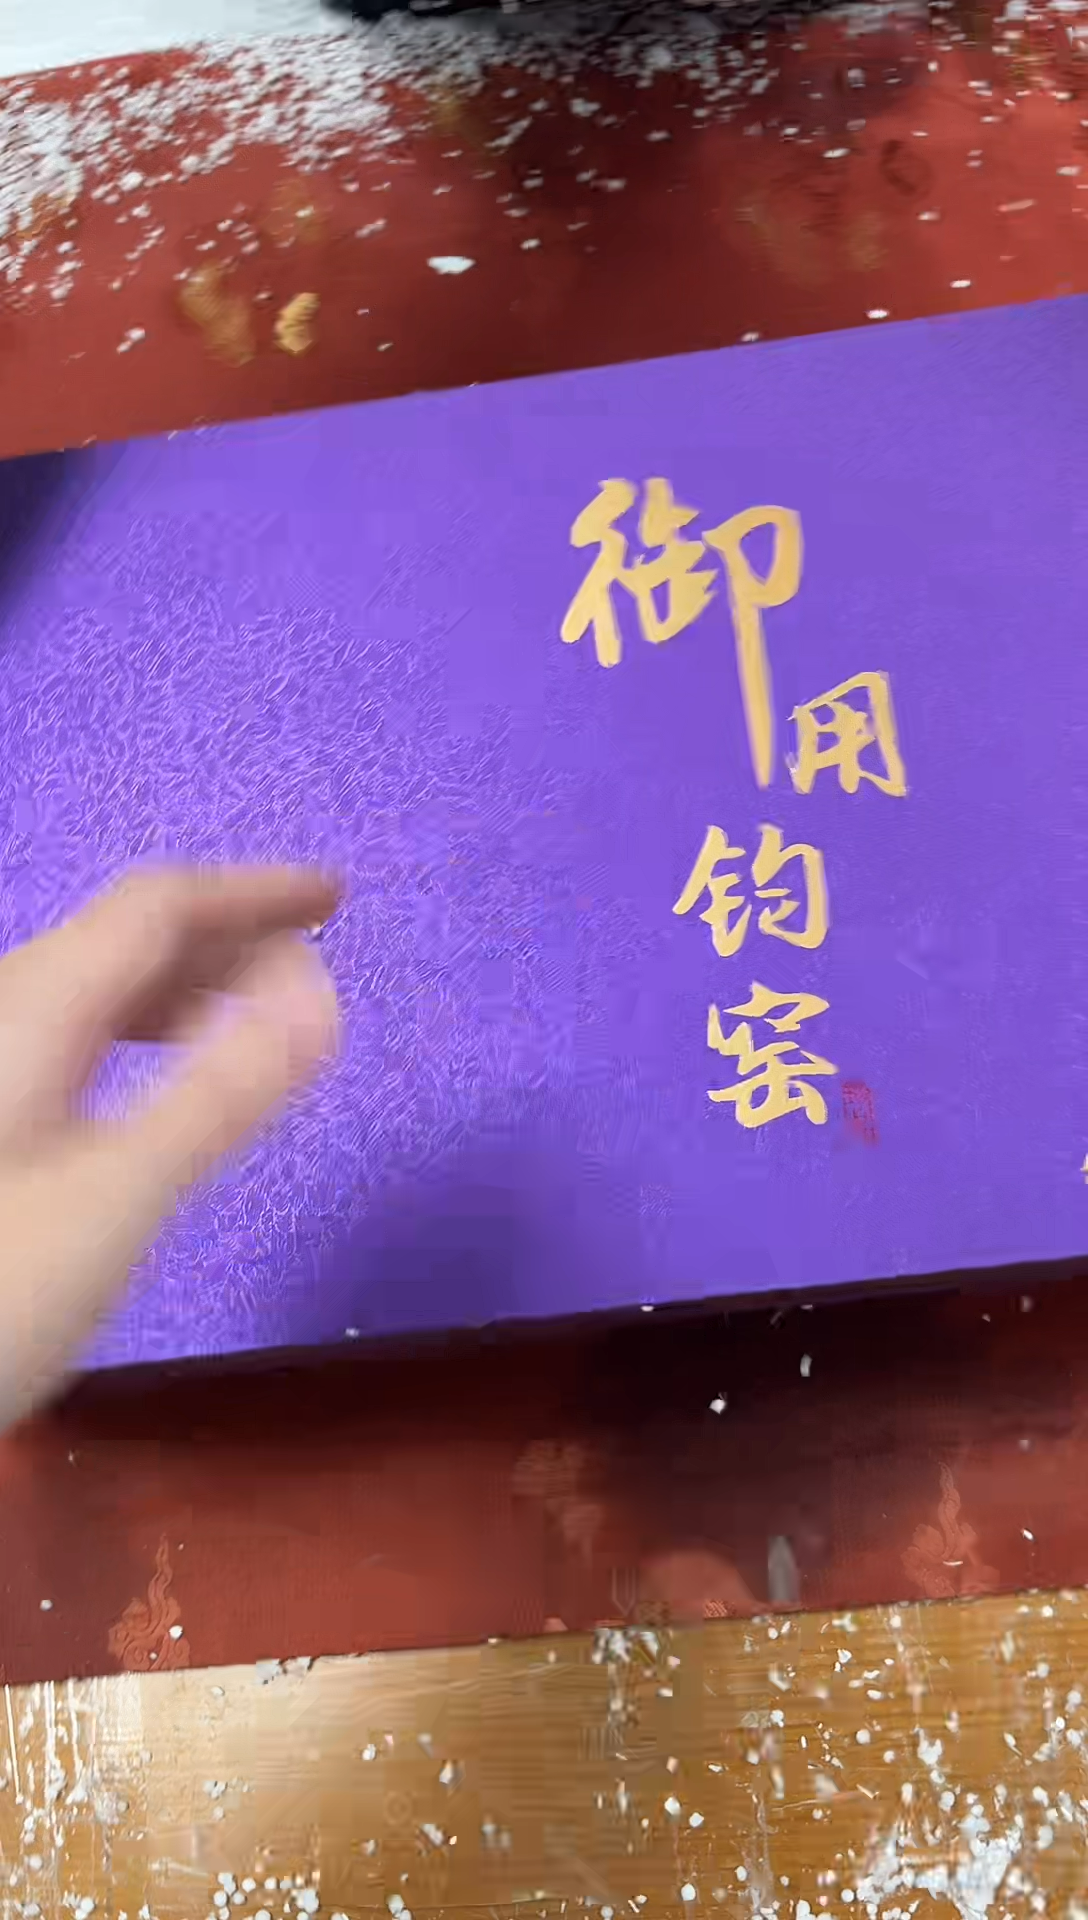 御用
钧窑